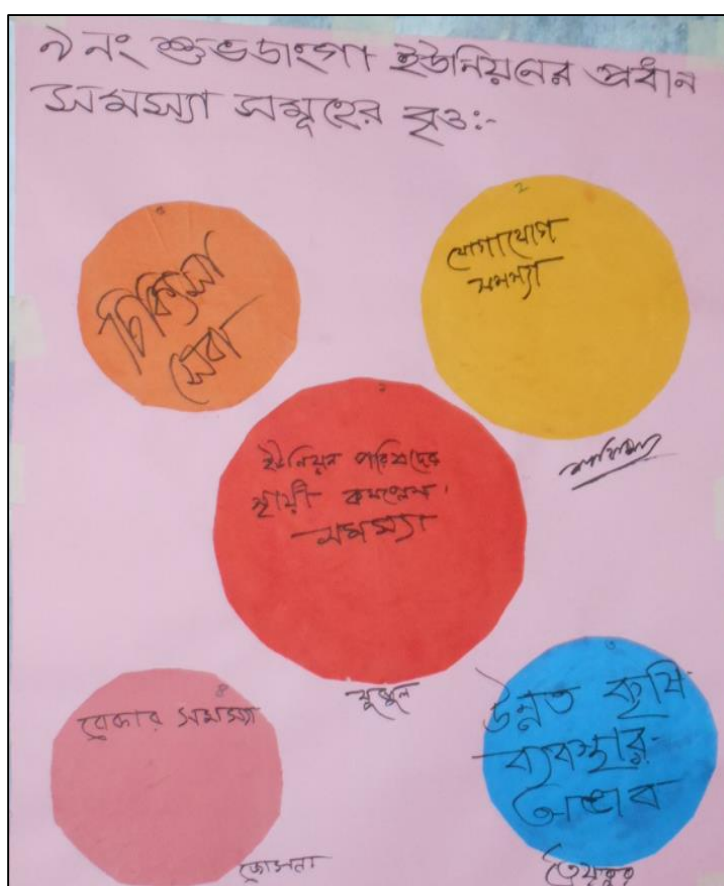 ৯ নং শুভডাংগা ইউনিয়নের প্রধান
সমস্যা সমূহের বৃত্ত:-
৩
চিকিৎসা
সেবা
২
যোগাযোগ
সমস্যা
১
ইউনিয়ন পরিষদের
স্থায়ী কমপ্লেক্স
সমস্যা
বেকার সমস্যা
জোসনা
উন্নত কৃষি
ব্যবস্থার
অভাব